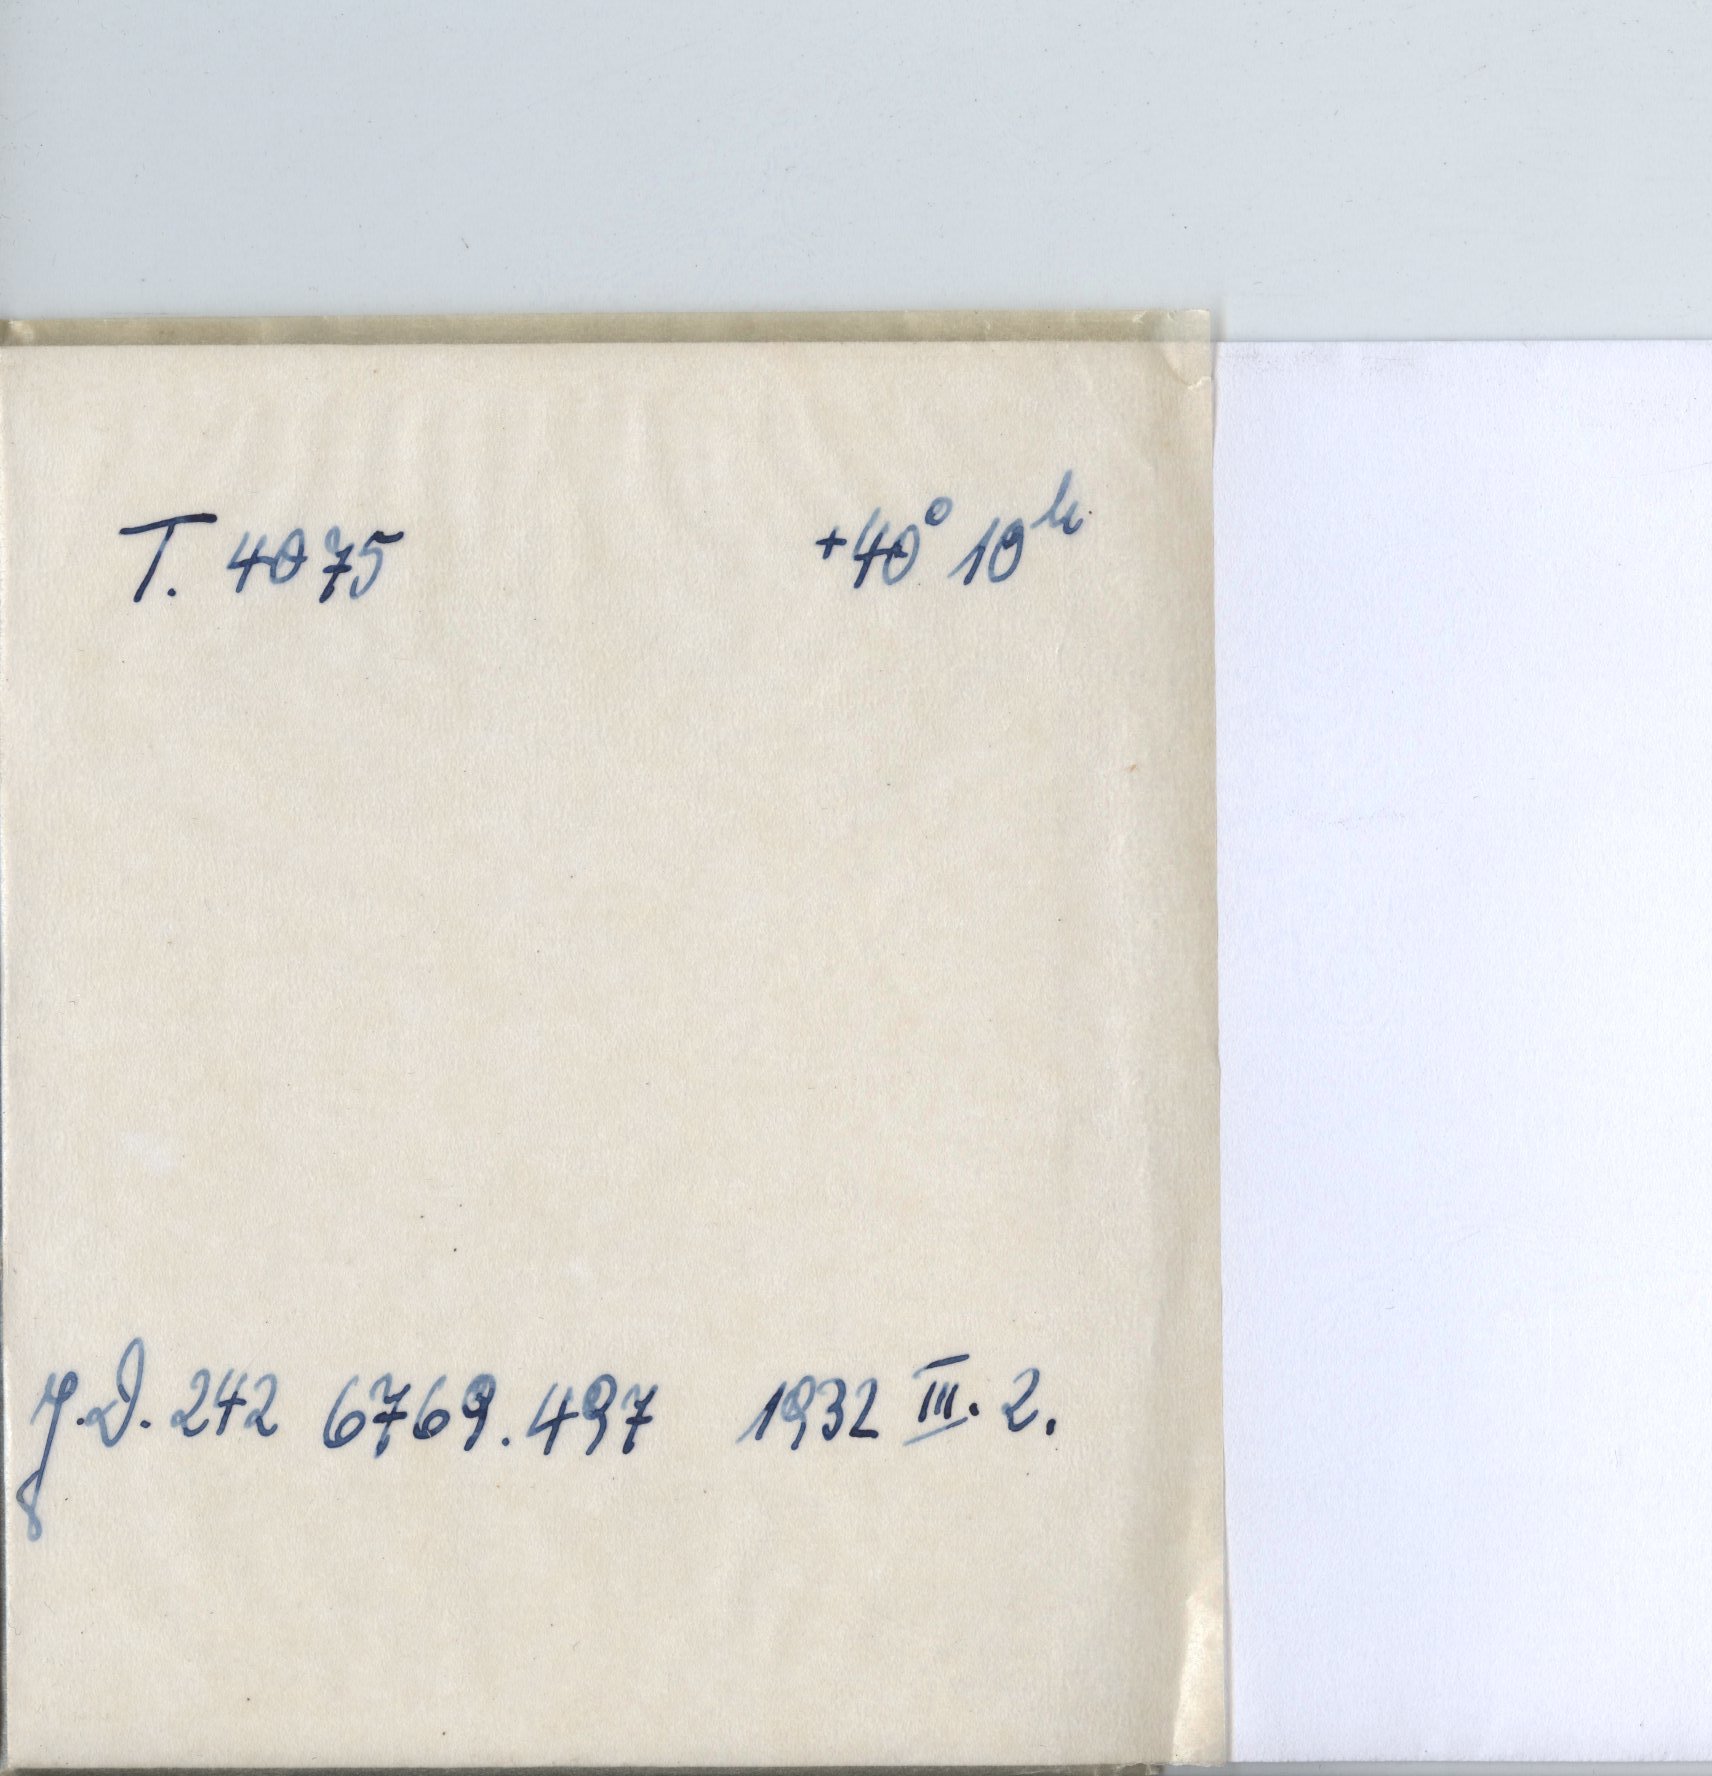 T. 4075 +40° 10ʰ
J.D. 242 6769.497 1932 III. 2.